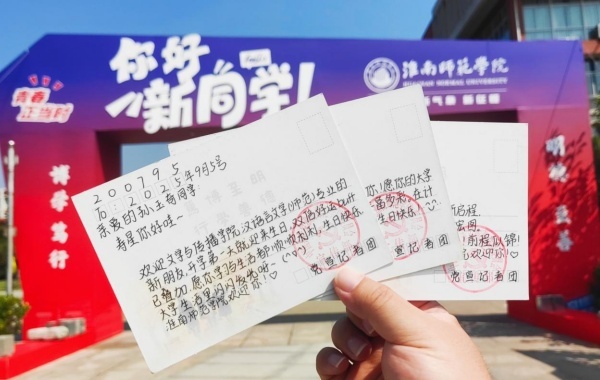 你好
新同学!
青春
正当时
淮南师范学院
HUAINAN NORMAL UNIVERSITY
博学笃行
200795
To 2025年9月5号
亲爱的孙王奇同学
寿星你好哇~
欢迎文学与传播学院汉语言文学(师范)专业的
新朋友,开学第一天就迎来生日,双倍好运此刻
已叠加,愿你学 与生活都顺顺利利,生日快乐
大学生 里闪闪发光
淮南师范学院欢迎你!♡
记者团
你!愿你的大学
富多彩,在计
生日快乐!♡
记者团
启程
宏图
!前程似锦!
欢迎你!♡
记者团